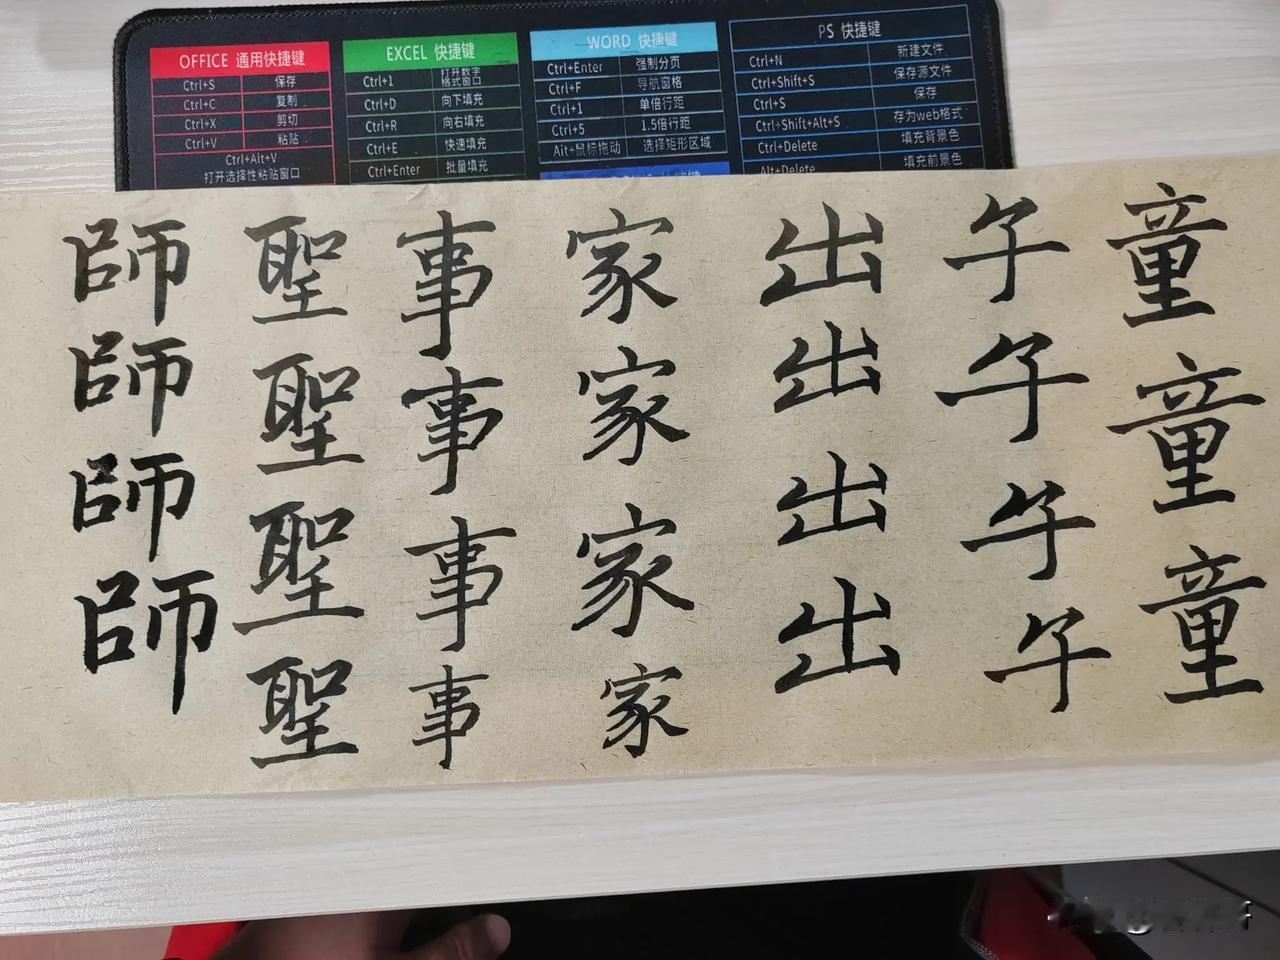 OFFICE 通用快捷键
Ctrl+S 保存
Ctrl+C 复制
Ctrl+X 剪切
Ctrl+V 粘贴
Ctrl+Alt+V
打开选择性粘贴窗口
EXCEL 快捷键
Ctrl+1 打开数字格式窗口
Ctrl+D 向下填充
Ctrl+R 向右填充
Ctrl+E 快速填充
Ctrl+Enter 批量填充
WORD 快捷键
Ctrl+Enter 强制分页
Ctrl+F 导航窗格
Ctrl+1 单倍行距
Ctrl+5 1.5倍行距
Alt+鼠标拖动 选择矩形区域
PS 快捷键
Ctrl+N 新建文件
Ctrl+Shift+S 保存源文件
Ctrl+S 保存
Ctrl+Shift+Alt+S 存为web格式
Ctrl+Delete 填充背景色
Alt+Delete 填充前景色
童童童
午午午午
出出出出
家家家家
事事事事
聖聖聖聖
師師師師